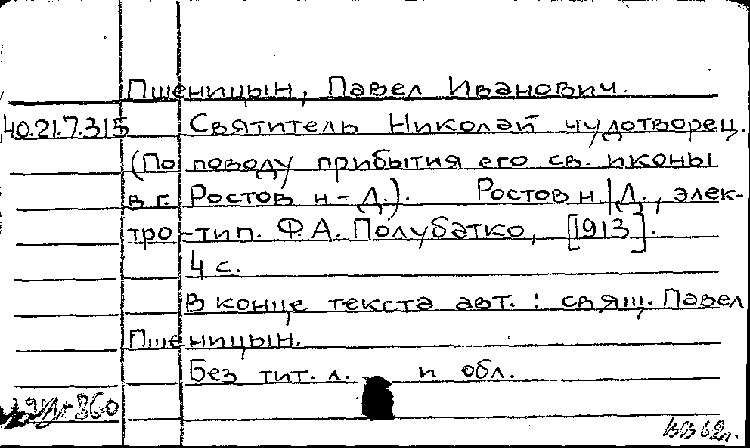 Пшеницын, Павел Иванович.
40.21.7.315 Святитель Николай чудотворец.
(По поводу прибытия его св. иконы
в г. Ростов н-Д.). Ростов н/Д., элек-
тро-тип. Ф.А. Полубатко, [1913].
4 с.
В конце текста авт.: свящ. Павел
Пшеницын.
Без тит. л. и обл.